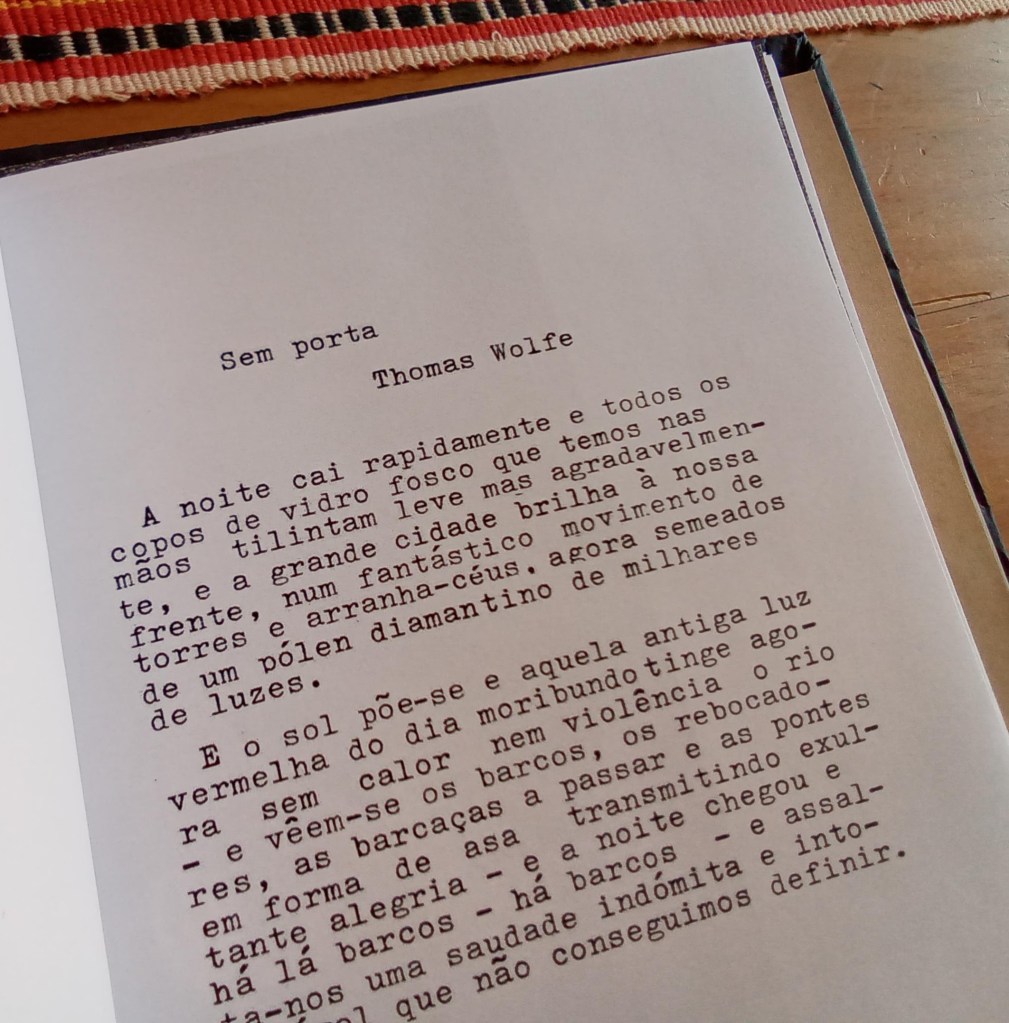 Sem porta
Thomas Wolfe
A noite cai rapidamente e todos os
copos de vidro fosco que temos nas
mãos tilintam leve mas agradavelmen-
te, e a grande cidade brilha à nossa
frente, num fantástico movimento de
torres e arranha-céus. agora semeados
de um pólen diamantino de milhares
de luzes.
E o sol põe-se e aquela antiga luz
vermelha do dia moribundo tinge ago-
ra sem calor nem violência o rio
- e vêem-se os barcos, os rebocado-
res, as barcaças a passar e as pontes
em forma de asa transmitindo exul-
tante alegria - e a noite chegou e
há lá barcos - há barcos - e assal-
ta-nos uma saudade indómita e into-
que não conseguimos definir.